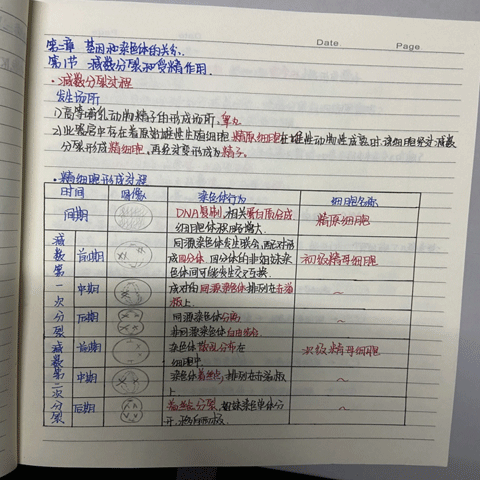 Date.
Page.
第二章 基因和染色体的关系.
第1节 减数分裂和受精作用.
·减数分裂过程
发生场所
1)高等哺乳动物精子的形成场所,睾丸
2)睾丸中存在着原始雄性生殖细胞精原细胞在雄性动物性成熟时,该细胞经过减数
分裂形成精细胞,再经过变形成为精子.
·精细胞形成过程
时间 图像 染色体行为 细胞名称
间期 DNA复制,相关蛋白质合成 精原细胞
细胞体积略增大.
减数第一次分裂
前期 同源染色体发生联会,两两配对形
成四分体,四分体的非姐妹染 初级精母细胞
色体间可能发生交叉互换.
中期 成对的同源染色体排列在赤道
板上. ~
后期 同源染色体分离 ~
非同源染色体自由组合.
减数第二次分裂
前期 染色体散乱分布在 次级精母细胞
细胞中.
中期 染色体着丝点排列在赤道板 ~
上
后期 着丝点分裂,姐妹染色单体分 ~
开,移向两极